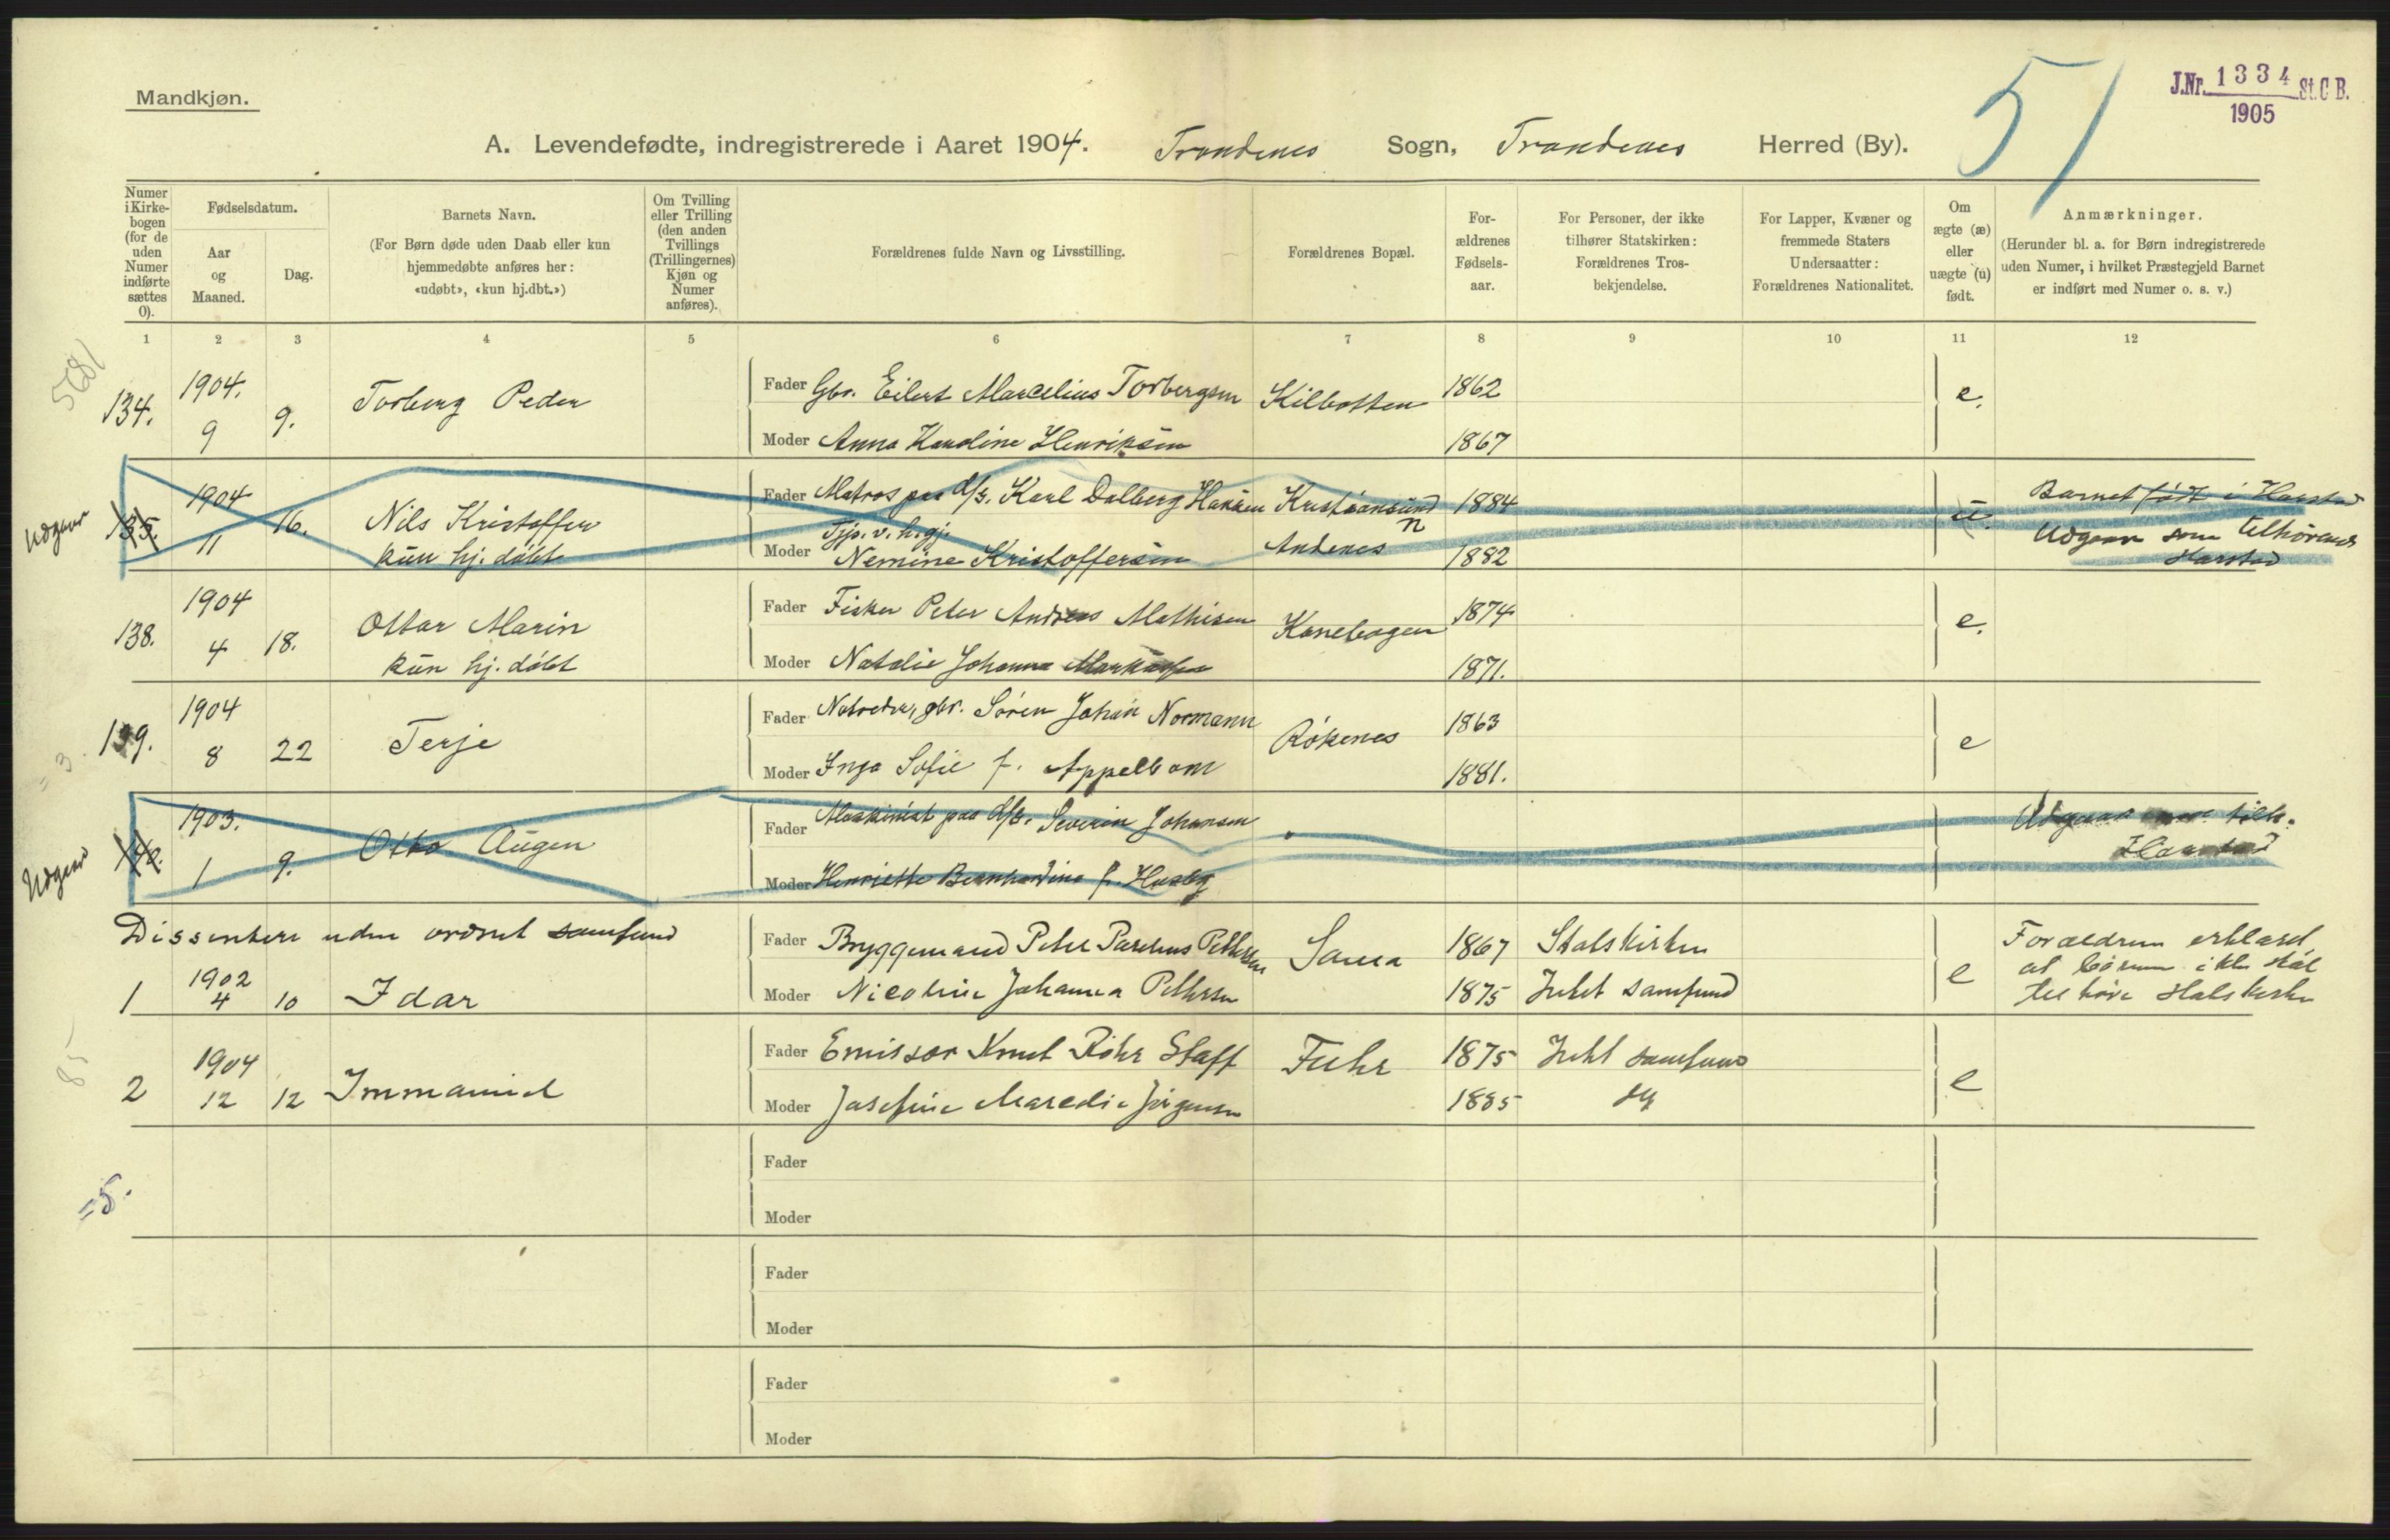 Mandkjøn.
51
J.Nr. 1334 St. C B.
1905
A. Levendefødte, indregistrerede i Aaret 1904. Trondenes Sogn, Trondenes Herred (By).
Numer i Kirkebogen (for de uden Numer indførte sættes 0).
Fødselsdatum.
Aar og Maaned.
Dag.
Barnets Navn.
(For Børn døde uden Daab eller kun hjemmedøbte anføres her: «udøbt», «kun hj.dbt.»)
Om Tvilling eller Trilling (den anden Tvillings (Trillingernes) Kjøn og Numer anføres).
Forældrenes fulde Navn og Livsstilling.
Forældrenes Bopæl.
Forældrenes Fødselsaar.
For Personer, der ikke tilhører Statskirken: Forældrenes Trosbekjendelse.
For Lapper, Kvæner og fremmede Staters Undersaatter: Forældrenes Nationalitet.
Om ægte (æ) eller uægte (u) født.
Anmærkninger.
(Herunder bl. a. for Børn indregistrerede uden Numer, i hvilket Præstegjeld Barnet er indført med Numer o. s. v.)
1 2 3 4 5 6 7 8 9 10 11 12
5681
134. 1904. 9 9. Torberg Peder
Fader Gbr. Eilert Marcelius Torbergsen Kilbotten 1862 e.
Moder Anna Karoline Henriksen 1867
Udgaar
135. 1904 11 16. Nils Kristoffer
kun hj. døbt
Fader Matros paa d/s. Karl Dalberg Hansen Kristiansund N 1884 u.
Tjp. v. h.gj.
Moder Nemine Kristoffersen Andenes 1882
Barnet født i Harstad
Udgaar som tilhørende
Harstad
138. 1904 4 18. Ottar Marin
kun hj. døbt
Fader Fisker Peter Andreas Mathisen Kanebogen 1874 e.
Moder Natalie Johanna 1871.
139. 1904 8 22 Terje
Fader Notreder, gbr. Søren Johan Normann Røkenes 1863 e
Moder Inga Sofie f. Appelbom 1881.
= 3.
Udgaar
140. 1903. 1 9. Otto Augen
Fader Maskinist paa d/s. Severin Johansen
Moder Henriette Bernhardine f. Husby
Udgaar som tilh.
Harstad
Dissentere uden ordnet samfund
1 1902 4 10 Idar
Fader Bryggemand Peter Parelius Pettersen Sama 1867 Statskirken e
Moder Nicoline Johanna Pettersen 1875 Intet samfund
Forældrene erklæret
at børnene ikke skal
tilhøre Statskirken
85
2 1904 12 12 Immanuel
Fader Emissær Knut Røhr Staff 1875 Intet samfund e
Moder Josefine Maredie Jørgensen 1885 do
= 5.
Fader
Moder
Fader
Moder
Fader
Moder